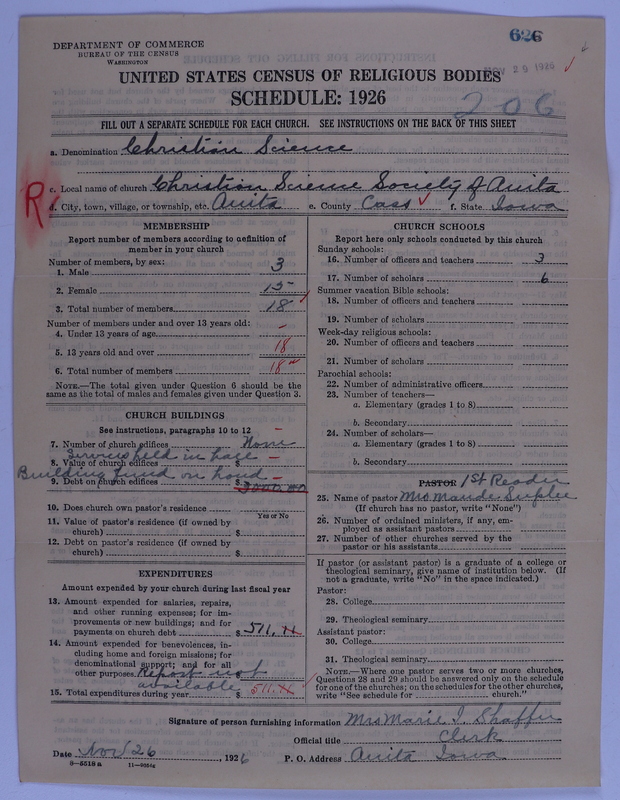 626
DEPARTMENT OF COMMERCE
BUREAU OF THE CENSUS
WASHINGTON
NOV 29 1926
UNITED STATES CENSUS OF RELIGIOUS BODIES
SCHEDULE: 1926
206
FILL OUT A SEPARATE SCHEDULE FOR EACH CHURCH. SEE INSTRUCTIONS ON THE BACK OF THIS SHEET
a. Denomination Christian Science
R
c. Local name of church Christian Science Society of Anita
d. City, town, village, or township, etc. Anita e. County Cass f. State Iowa
MEMBERSHIP
Report number of members according to definition of
member in your church
Number of members, by sex:
1. Male 3
2. Female 15
3. Total number of members 18
Number of members under and over 13 years old:
4. Under 13 years of age –
5. 13 years old and over 18
6. Total number of members 18
NOTE.—The total given under Question 6 should be the
same as the total of males and females given under Question 3.
CHURCH BUILDINGS
See instructions, paragraphs 10 to 12 –
7. Number of church edifices None
Services held in
8. Value of church edifices $ –
Building fund on hand
9. Debt on church edifices $ –
10. Does church own pastor's residence
Yes or No
11. Value of pastor's residence (if owned by
church) $
12. Debt on pastor's residence (if owned by
church) $
EXPENDITURES
Amount expended by your church during last fiscal year
13. Amount expended for salaries, repairs,
and other running expenses; for im-
provements or new buildings; and for
payments on church debt $ 511.
14. Amount expended for benevolences, in-
cluding home and foreign missions; for
denominational support; and for all
other purposes Report not
available
15. Total expenditures during year $ 511.
CHURCH SCHOOLS
Report here only schools conducted by this church
Sunday schools:
16. Number of officers and teachers 3
17. Number of scholars 6
Summer vacation Bible schools:
18. Number of officers and teachers
19. Number of scholars
Week-day religious schools:
20. Number of officers and teachers
21. Number of scholars
Parochial schools:
22. Number of administrative officers
23. Number of teachers—
a. Elementary (grades 1 to 8)
b. Secondary
24. Number of scholars—
a. Elementary (grades 1 to 8)
b. Secondary
PASTOR 1st Reader
25. Name of pastor Mrs Maude
(If church has no pastor, write "None")
26. Number of ordained ministers, if any, em-
ployed as assistant pastors
27. Number of other churches served by the
pastor or his assistants
If pastor (or assistant pastor) is a graduate of a college or
theological seminary, give name of institution below. (If
not a graduate, write "No" in the space indicated.)
Pastor:
28. College
29. Theological seminary
Assistant pastor:
30. College
31. Theological seminary
NOTE.—Where one pastor serves two or more churches,
Questions 28 and 29 should be answered only on the schedule
for one of the churches; on the schedules for the other churches,
write "See schedule for church."
Signature of person furnishing information Mrs Marie I. Shaffer
Official title Clerk
Date Nov 26, 1926 P. O. Address Anita Iowa